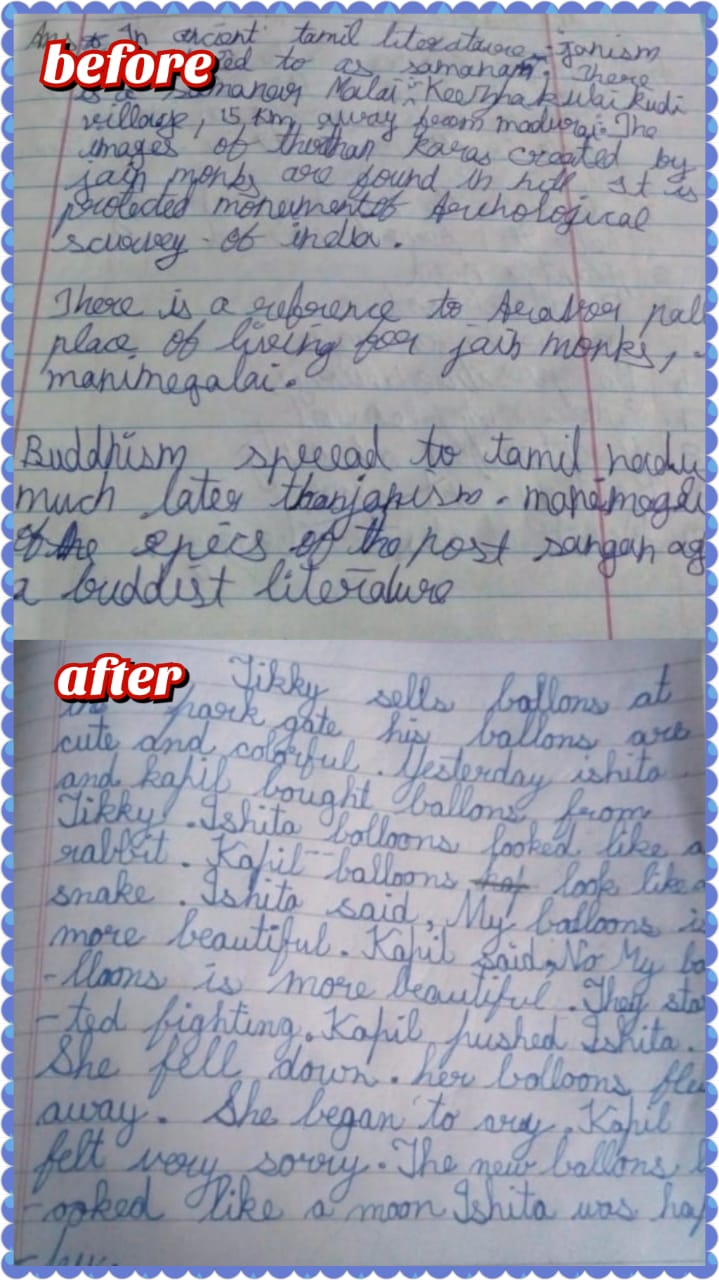 before
Ans In ancient tamil literature, janism
to as samanam. There
is a samanar Malai Keezhakulaikudi
village, 15 Km away from madurai. The
images of karas created by
jain monks are found in hill It is
protected monumentof Archological
survey of india.
There is a reference to Aravor pall
place of living for jain monks,
manimegalai.
Buddhism spread to tamil nadu
much later thanjanism. manimogal
of the epics of the post sangan ag
a buddist literature
after
Tikky sells ballons at
the park gate his ballons are
cute and colorful. Yesterday ishita
and kapil bought ballons from
Tikky. Ishita bolloons looked like a
rabbit. Kapil balloons look like a
snake. Ishita said, My balloons is
more beautiful. Kapil said, No My ba
-lloons is more beautiful. They sta
-ted fighting. Kapil pushed Ishita.
She fell down. her balloons flew
away. She began to cry. Kapil
felt very sorry. The new ballons l
-ooked like a moon Ishita was hap